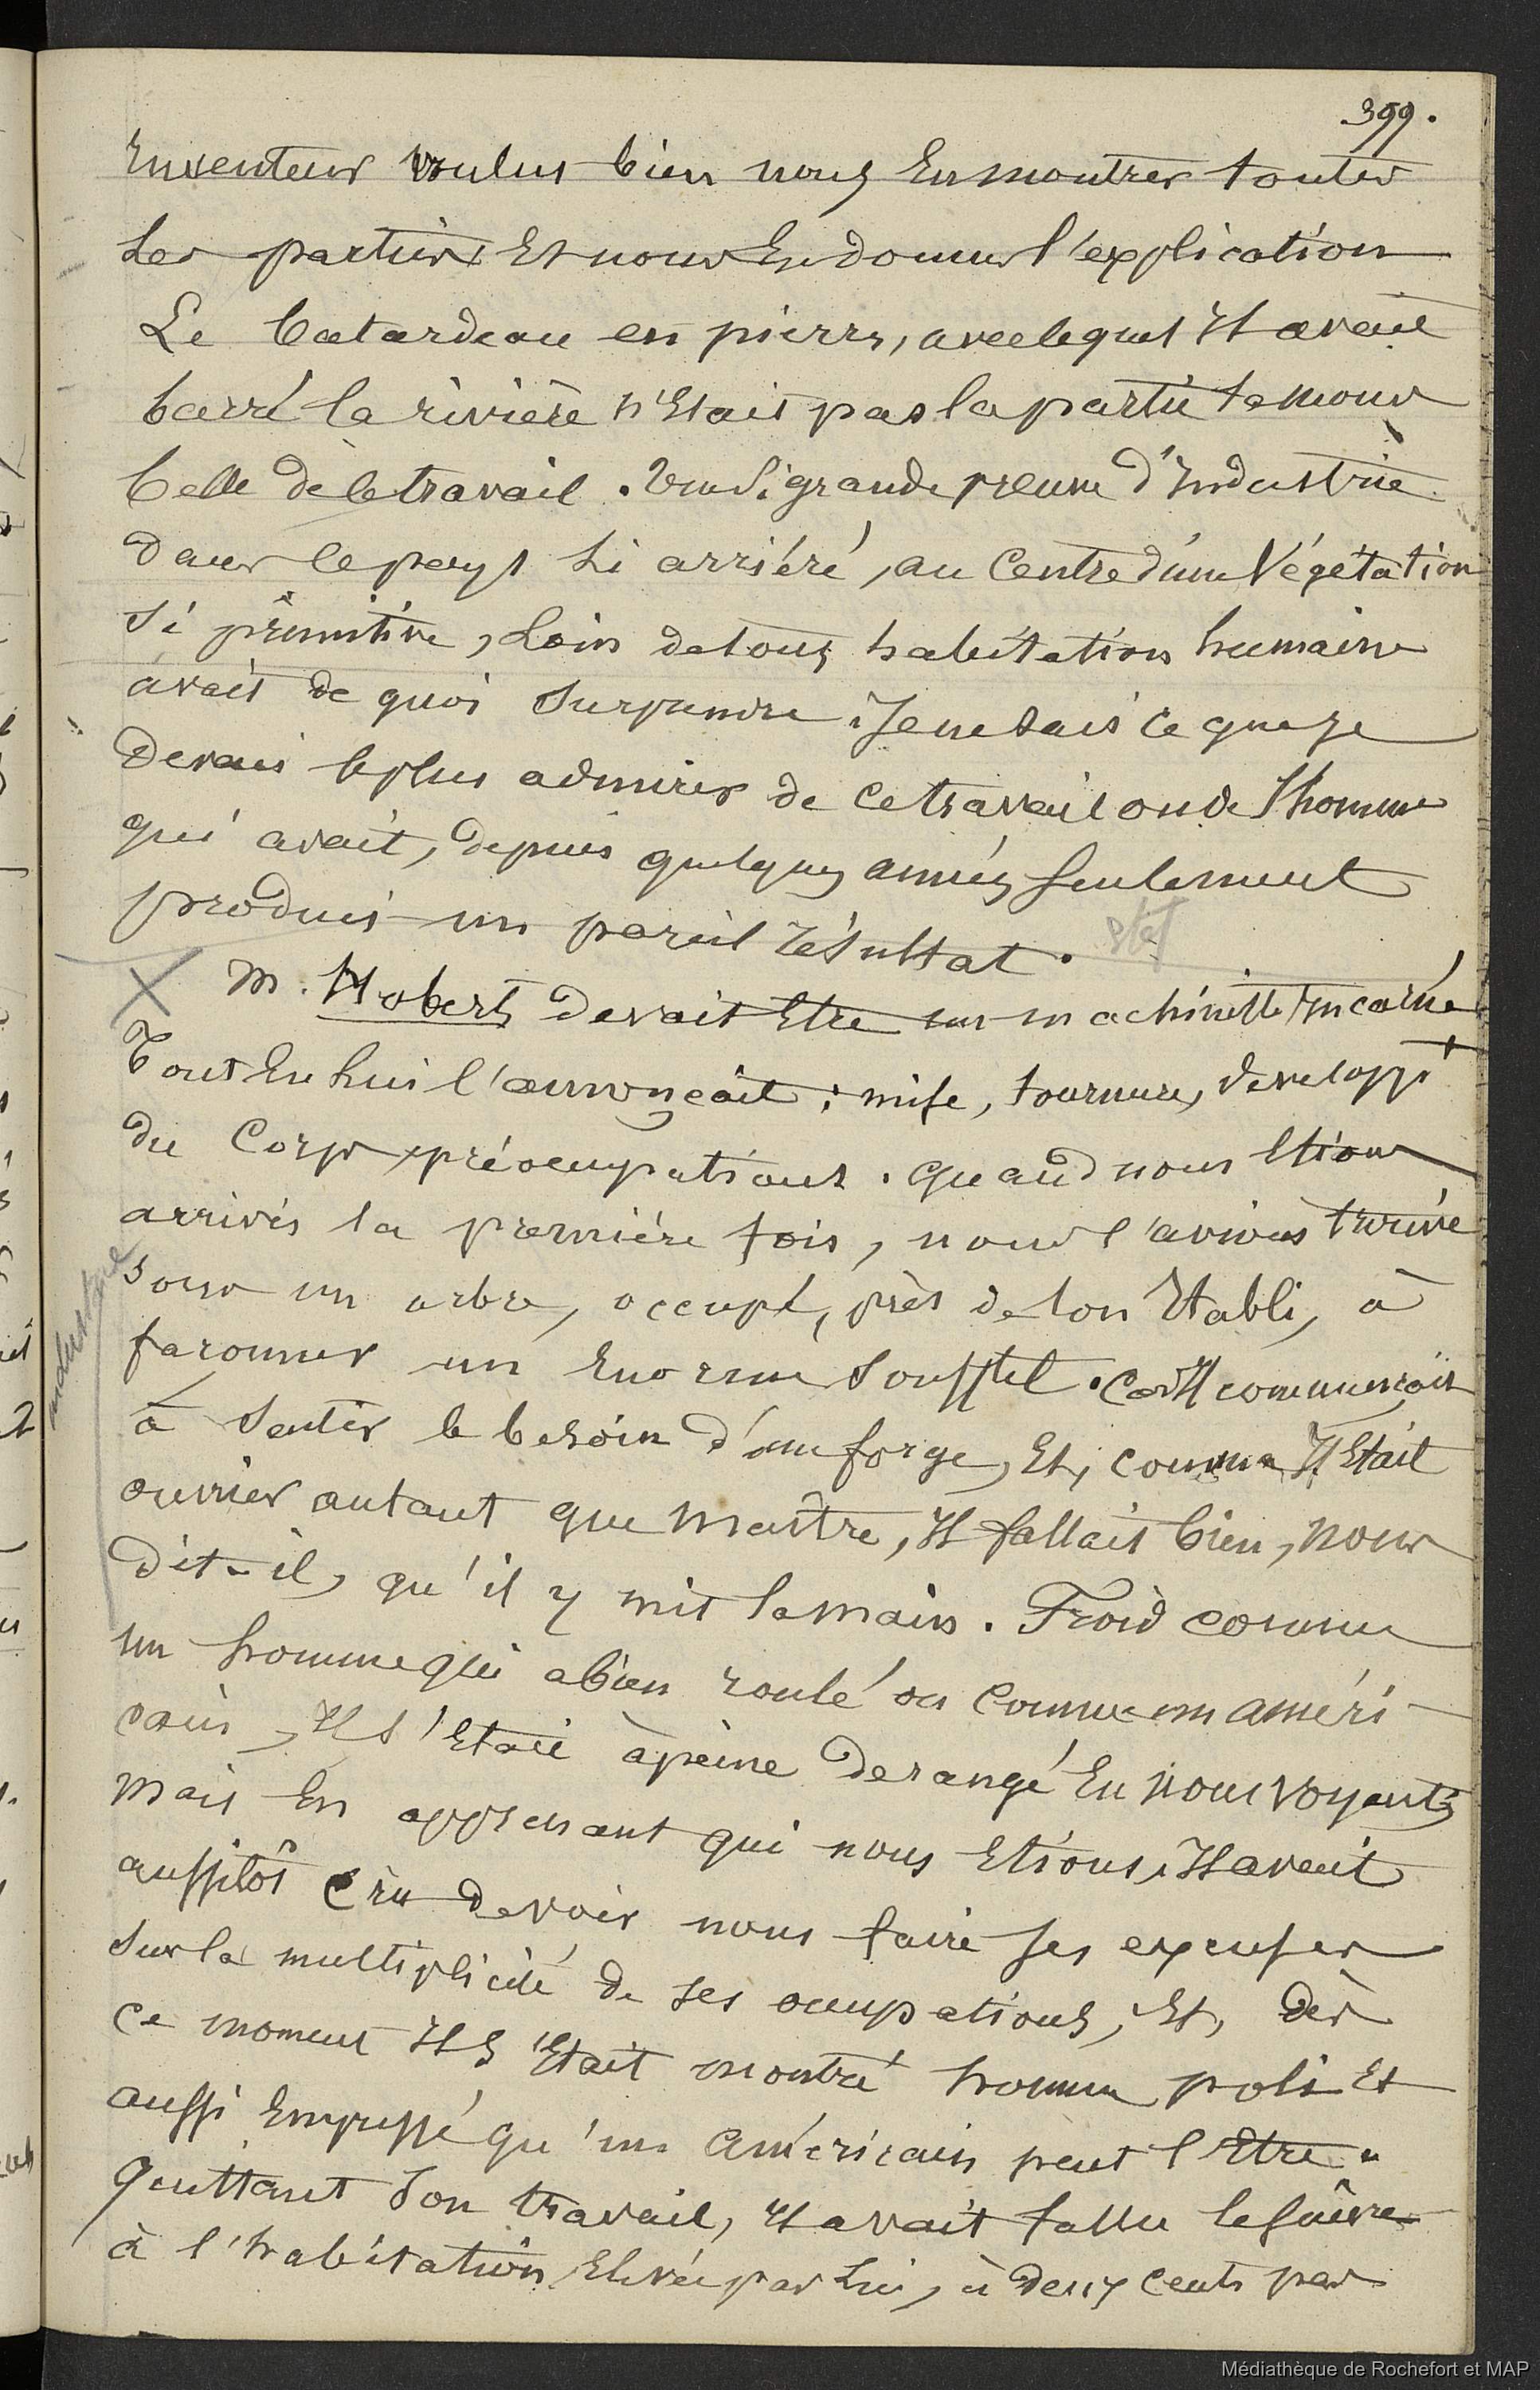 399.
Inventeur voulut bien nous En montrer toutes
les parties Et nous En donner l'explication
Le batardeau en pierre, avec lequel Il avait
barré la rivière n'Etait pas la partie la moins
belle de ce travail. Une Si grande preuve d'Industrie
dans ce pays si arriéré, au Centre d'une Végétation
Si primitive, Loin de toute habitation humaine
avait de quoi Surprendre. Je ne sais ce que je
Devais le plus admirer de ce travail ou de l'homme
qui avait, depuis quelques années seulement
produit un pareil résultat.
X M. Hoberts devait Etre un machiniste Incarné
Tout En lui l'annonçait : mise, tournure, developpt
du Corps, préocupations. quand nous Etions
arrivés la première fois, nous l'avions trouvé
sous un arbre, occupé, près de son Etabli, à
faconner un Enorme Soufflet. Car Il commençait
à Sentir le besoin d'une forge, Et, comme Il Etait
ouvrier autant que maître, Il fallait bien, nous
dit-il, qu'il y mit la main. Froid comme
un homme qui a bien roulé ou comme un améri-
cain, Il s'Etait à peine derangé En nous voyant,
mais En apprenant qui nous Etions, Il avait
aussitôt Cru devoir nous faire ses excuses
Sur la multiplicité de ses ocupations, Et, dès
ce moment Il S'Etait montré homme poli Et
aussi Empressé qu'un Américain peut l'Etre.
Quittant Son travail, Il avait fallu le suivre
à l'habitation Elevée par Lui, à deux cents pas
industrie
Médiathèque de Rochefort et MAP